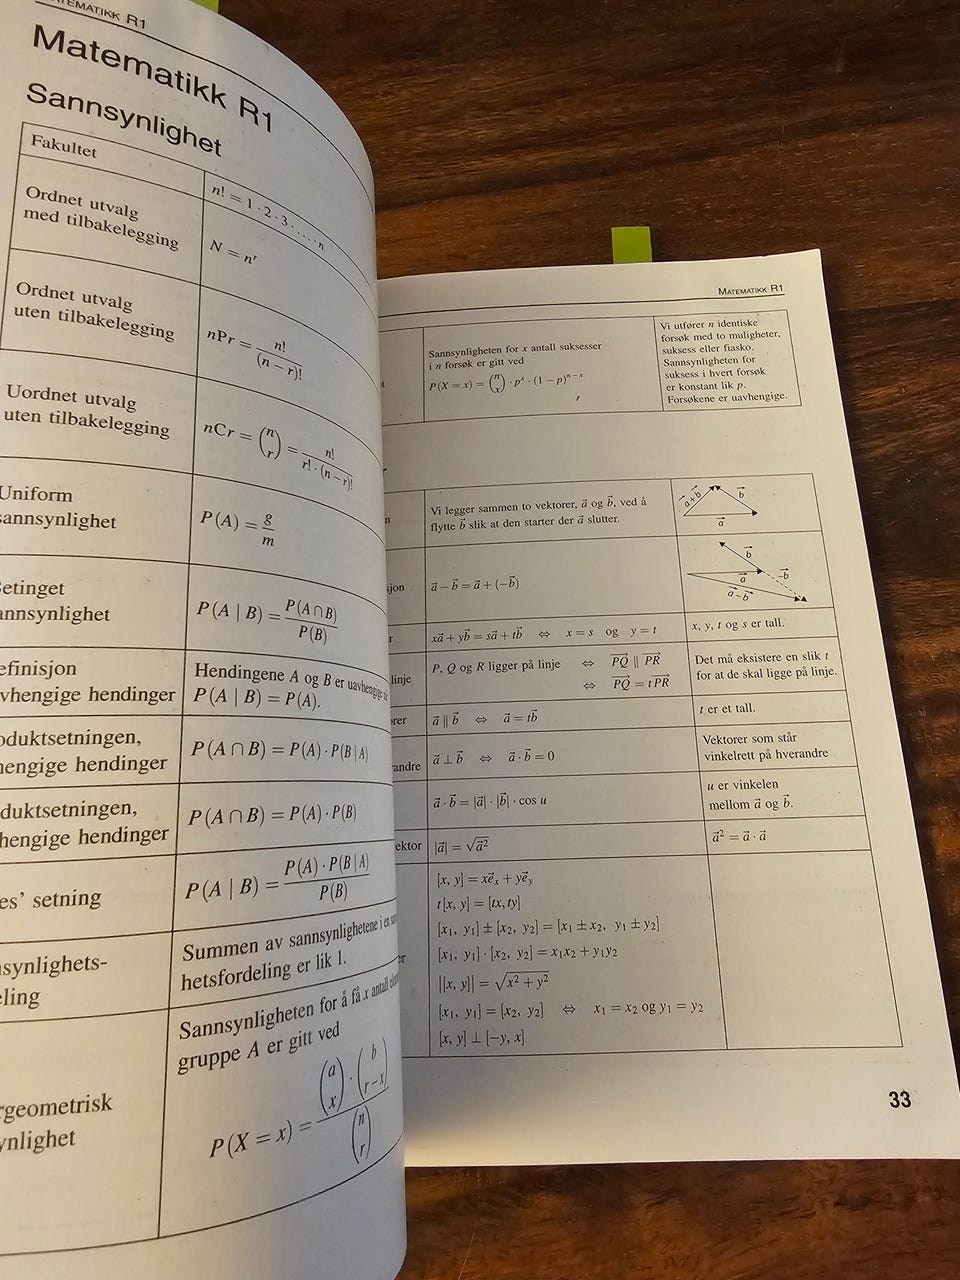 MATEMATIKK R1
Matematikk R1
Sannsynlighet
Fakultet
n! = 1 · 2 · 3 · … · n
Ordnet utvalg
med tilbakelegging
N = nʳ
Ordnet utvalg
uten tilbakelegging
nPr = n! / (n − r)!
Uordnet utvalg
uten tilbakelegging
nCr = (n r) = n! / (r! · (n − r)!)
Uniform
sannsynlighet
P(A) = g / m
etinget
annsynlighet
P(A | B) = P(A ∩ B) / P(B)
efinisjon
vhengige hendinger
Hendingene A og B er uavhengige
P(A | B) = P(A).
oduktsetningen,
hengige hendinger
P(A ∩ B) = P(A) · P(B | A)
duktsetningen,
hengige hendinger
P(A ∩ B) = P(A) · P(B)
es' setning
P(A | B) = P(A) · P(B | A) / P(B)
synlighets-
eling
Summen av sannsynlighetene i en
hetsfordeling er lik 1.
rgeometrisk
ynlighet
Sannsynligheten for å få x antall
gruppe A er gitt ved
P(X = x) = (a x) · (b r − x) / (n r)
MATEMATIKK R1
Sannsynligheten for x antall suksesser
i n forsøk er gitt ved
P(X = x) = (n x) · pˣ · (1 − p)ⁿ⁻ˣ
Vi utfører n identiske
forsøk med to muligheter,
suksess eller fiasko.
Sannsynligheten for
suksess i hvert forsøk
er konstant lik p.
Forsøkene er uavhengige.
n
Vi legger sammen to vektorer, a⃗ og b⃗, ved å
flytte b⃗ slik at den starter der a⃗ slutter.
a⃗ + b⃗
b⃗
a⃗
sjon
a⃗ − b⃗ = a⃗ + (−b⃗)
b⃗
a⃗
−b⃗
a⃗ − b⃗
r
xa⃗ + yb⃗ = sa⃗ + tb⃗ ⇔ x = s og y = t
x, y, t og s er tall.
linje
P, Q og R ligger på linje ⇔ PQ⃗ ∥ PR⃗
⇔ PQ⃗ = tPR⃗
Det må eksistere en slik t
for at de skal ligge på linje.
rer
a⃗ ∥ b⃗ ⇔ a⃗ = tb⃗
t er et tall.
andre
a⃗ ⊥ b⃗ ⇔ a⃗ · b⃗ = 0
Vektorer som står
vinkelrett på hverandre
a⃗ · b⃗ = |a⃗| · |b⃗| · cos u
u er vinkelen
mellom a⃗ og b⃗.
ektor
|a⃗| = √a⃗²
a⃗² = a⃗ · a⃗
er
[x, y] = xe⃗ₓ + ye⃗ᵧ
t[x, y] = [tx, ty]
[x₁, y₁] ± [x₂, y₂] = [x₁ ± x₂, y₁ ± y₂]
[x₁, y₁] · [x₂, y₂] = x₁x₂ + y₁y₂
|[x, y]| = √(x² + y²)
[x₁, y₁] = [x₂, y₂] ⇔ x₁ = x₂ og y₁ = y₂
[x, y] ⊥ [−y, x]
33